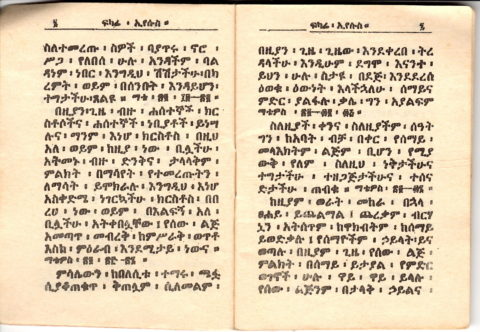 ፮ ፍካሬ ፡ ኢየሱስ ።
ስለተመረጡ ፡ ሰዎች ፡ ባያጥሩ ፡ ኖሮ ፡
ሥጋ ፡ የለበሰ ፡ ሁሉ ፡ እንዳችም ፡ ባል
ዳነም ፡ ነበር ፡ እንግዲህ ፡ ሽሽታችሁ ፡ በክ
ረምት ፡ ወይም ፡ በሰንበት ፡ እንዳይሆን ፡
ተግታችሁ ፡ ጸልዩ ።
በዚያን ፡ ጊዜ ፡ ብዙ ፡ ሐሰተኞች ፡ ክር
ስቶሶችና ፡ ሐሰተኞች ፡ ነቢያቶች ፡ ይነሣ
ሉና ፡ ማንም ፡ እነሆ ፡ ክርስቶስ ፡ በዚህ ፡
አለ ፡ ወይም ፡ ከዚያ ፡ ነው ፡ ቢሏችሁ ፡
አትመኑ ፡ ብዙ ፡ ድንቅና ፡ ታላላቅም ፡
ምልክት ፡ በማሳየት ፡ የተመረጡትን ፡
ለማሳት ፡ ይሞክራሉ ፡ እንግዲህ ፡ እነሆ ፡
አስቀድሜ ፡ ነገርኳችሁ ፡ ክርስቶስ ፡ በበ
ረሀ ፡ ነው ፡ ወይም ፡ በእልፍኝ ፡ አለ ፡
ቢሏችሁ ፡ አትቀበሏቸው ፡ የሰው ፡ ልጅ ፡
አመጣጥ ፡ መብረቅ ፡ ከምሥራቅ ፡ ወጥቶ ፡
እስከ ፡ ምዕራብ ፡ እንደሚታይ ፡ ነውና ።
ምሳሌውን ፡ ከበለሲቱ ፡ ተማሩ ፡ ጫፏ ፡
ሲያቆጠቁጥ ፡ ቅጠሏም ፡ ሲለመልም ፡
ፍካሬ ፡ ኢየሱስ ።
በዚያን ፡ ጊዜ ፡ ጊዜው ፡ እንደቀረበ ፡ ትረ
ዳላችሁ ፡ እንዲሁም ፡ ደግሞ ፡ እናንተ ፡
ይህን ፡ ሁሉ ፡ ስታዩ ፡ በደጅ ፡ እንደደረሰ ፡
ዕወቁ ፡ ዕውነት ፡ እላችኋለሁ ፡ ሰማይና ፡
ምድር ፡ ያልፋሉ ፡ ቃሌ ፡ ግን ፡ አያልፍም ፡
ስለዚያች ፡ ቀንና ፡ ስለዚያችም ፡ ሰዓት ፡
ግን ፡ ከአባት ፡ ብቻ ፡ በቀር ፡ የሰማይ ፡
መላእክትም ፡ ልጅም ፡ ቢሆን ፡ የሚያ
ውቅ ፡ የለም ፡ ስለዚህ ፡ ነቅታችሁና ፡
ተግታችሁ ፡ ተዘጋጅታችሁና ፡ ተሰና
ድታችሁ ፡ ጠብቁ ።
ከዚያም ፡ ወራት ፡ መከራ ፡ በኋላ ፡
ፀሐይ ፡ ይጨልማል ፡ ጨረቃም ፡ ብርሃ
ኗን ፡ አትሰጥም ፡ ከዋክብትም ፡ ከሰማይ ፡
ይወድቃሉ ፡ የሰማዮችም ፡ ኃይላት ፡ ይና
ወጣሉ ፡ በዚያም ፡ ጊዜ ፡ የሰው ፡ ልጅ ፡
ምልክት ፡ በሰማይ ፡ ይታያል ፡ የምድር ፡
ወገኖች ፡ ሁሉ ፡ ዋይ ፡ ዋይ ፡ ይላሉ ፡
የሰው ፡ ልጅንም ፡ በታላቅ ፡ ኃይልና ፡